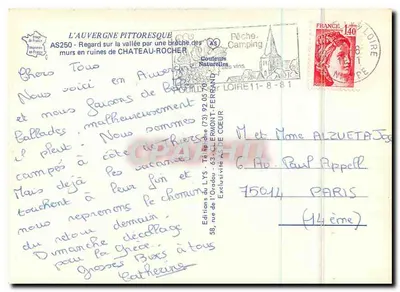 L'AUVERGNE PITTORESQUE
AS250 - Regard sur la vallée par une brèche des
murs en ruines de CHATEAU-ROCHER
Chers Tous
Nous voici en Auvergne
et nous faisons de
ballades, malheureusement
il pleut. Nous sommes
campés à côté
Mais déjà les vacances
touchent à leur fin et
nous reprenons le chemin
du retour demain.
Dimanche décollage
pour la Grèce.
Grosses Bises à tous
Catherine
AS
Couleurs
Naturelles
Editions du LYS - Téléphone (73) 92.05.70
58, rue de l'Oradou - 63 - CLERMONT-FERRAND
Exclusivité AS DE COEUR
Pêche-
Camping
LOIRE 11-8-81
FRANCE
1,40
LOIRE
M et Mme ALZUETA Jo
6, rue Paul Appell
75014 PARIS
(14ème)